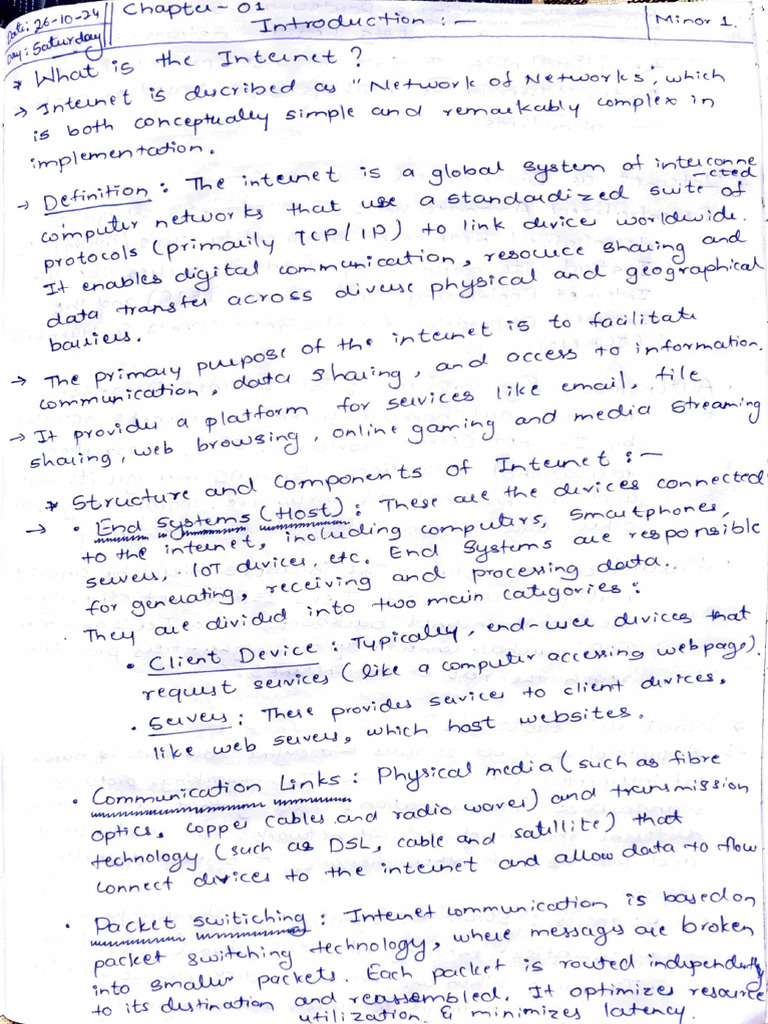 Date: 26-10-24
Day: Saturday
Chapter - 01
Introduction : -
Minor 1.
* What is the Internet ?
→ Internet is described as "Network of Networks", which
is both conceptually simple and remarkably complex in
implementation.
→ Definition : The internet is a global system of interconne
-cted
computer networks that use a standardized suite of
protocols (primarily TCP/IP) to link devices worldwide.
It enables digital communication, resource sharing and
data transfer across diverse physical and geographical
barriers.
→ The primary purpose of the internet is to facilitate
communication, data sharing, and access to information.
→ It provides a platform for services like email, file
sharing, web browsing, online gaming and media streaming
* Structure and Components of Internet : -
→ • End Systems (Host) : These are the devices connected
to the internet, including computers, smartphones,
servers, IOT devices, etc. End Systems are responsible
for generating, receiving and processing data.
They are divided into two main categories :
• Client Device : Typically, end-user devices that
request services (like a computer accessing webpage).
• Servers : These provides services to client devices,
like web servers, which host websites.
• Communication Links : Physical media (such as fibre
optics, copper cables and radio waves) and transmission
technology (such as DSL, cable and satellite) that
connect devices to the internet and allow data to flow
• Packet switiching : Internet communication is based on
packet switching technology, where messages are broken
into smaller packets. Each packet is routed independently
to its destination and reassembled. It optimizes resource
utilization & minimizes latency.